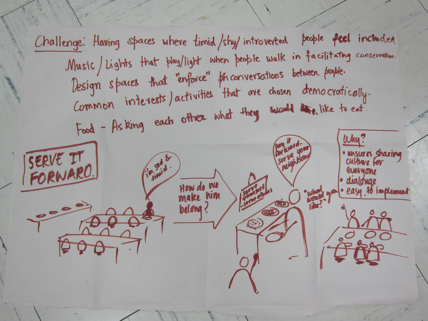 Challenge: Having spaces where timid/shy/introverted people feel included
Music/Lights that play/light when people walk in facilitating conversation.
Design spaces that "enforce" conversations between people.
Common interests/activities that are chosen democratically.
Food - Asking each other what they would like to eat.
SERVE IT
FORWARD.
i'm sad &
timid.
How do we
make him
belong?
pay it
forward.
serve your
neighbour
"What
would you
like?"
Why?
• ensures sharing
culture for
everyone
• dialogue
• easy to implement